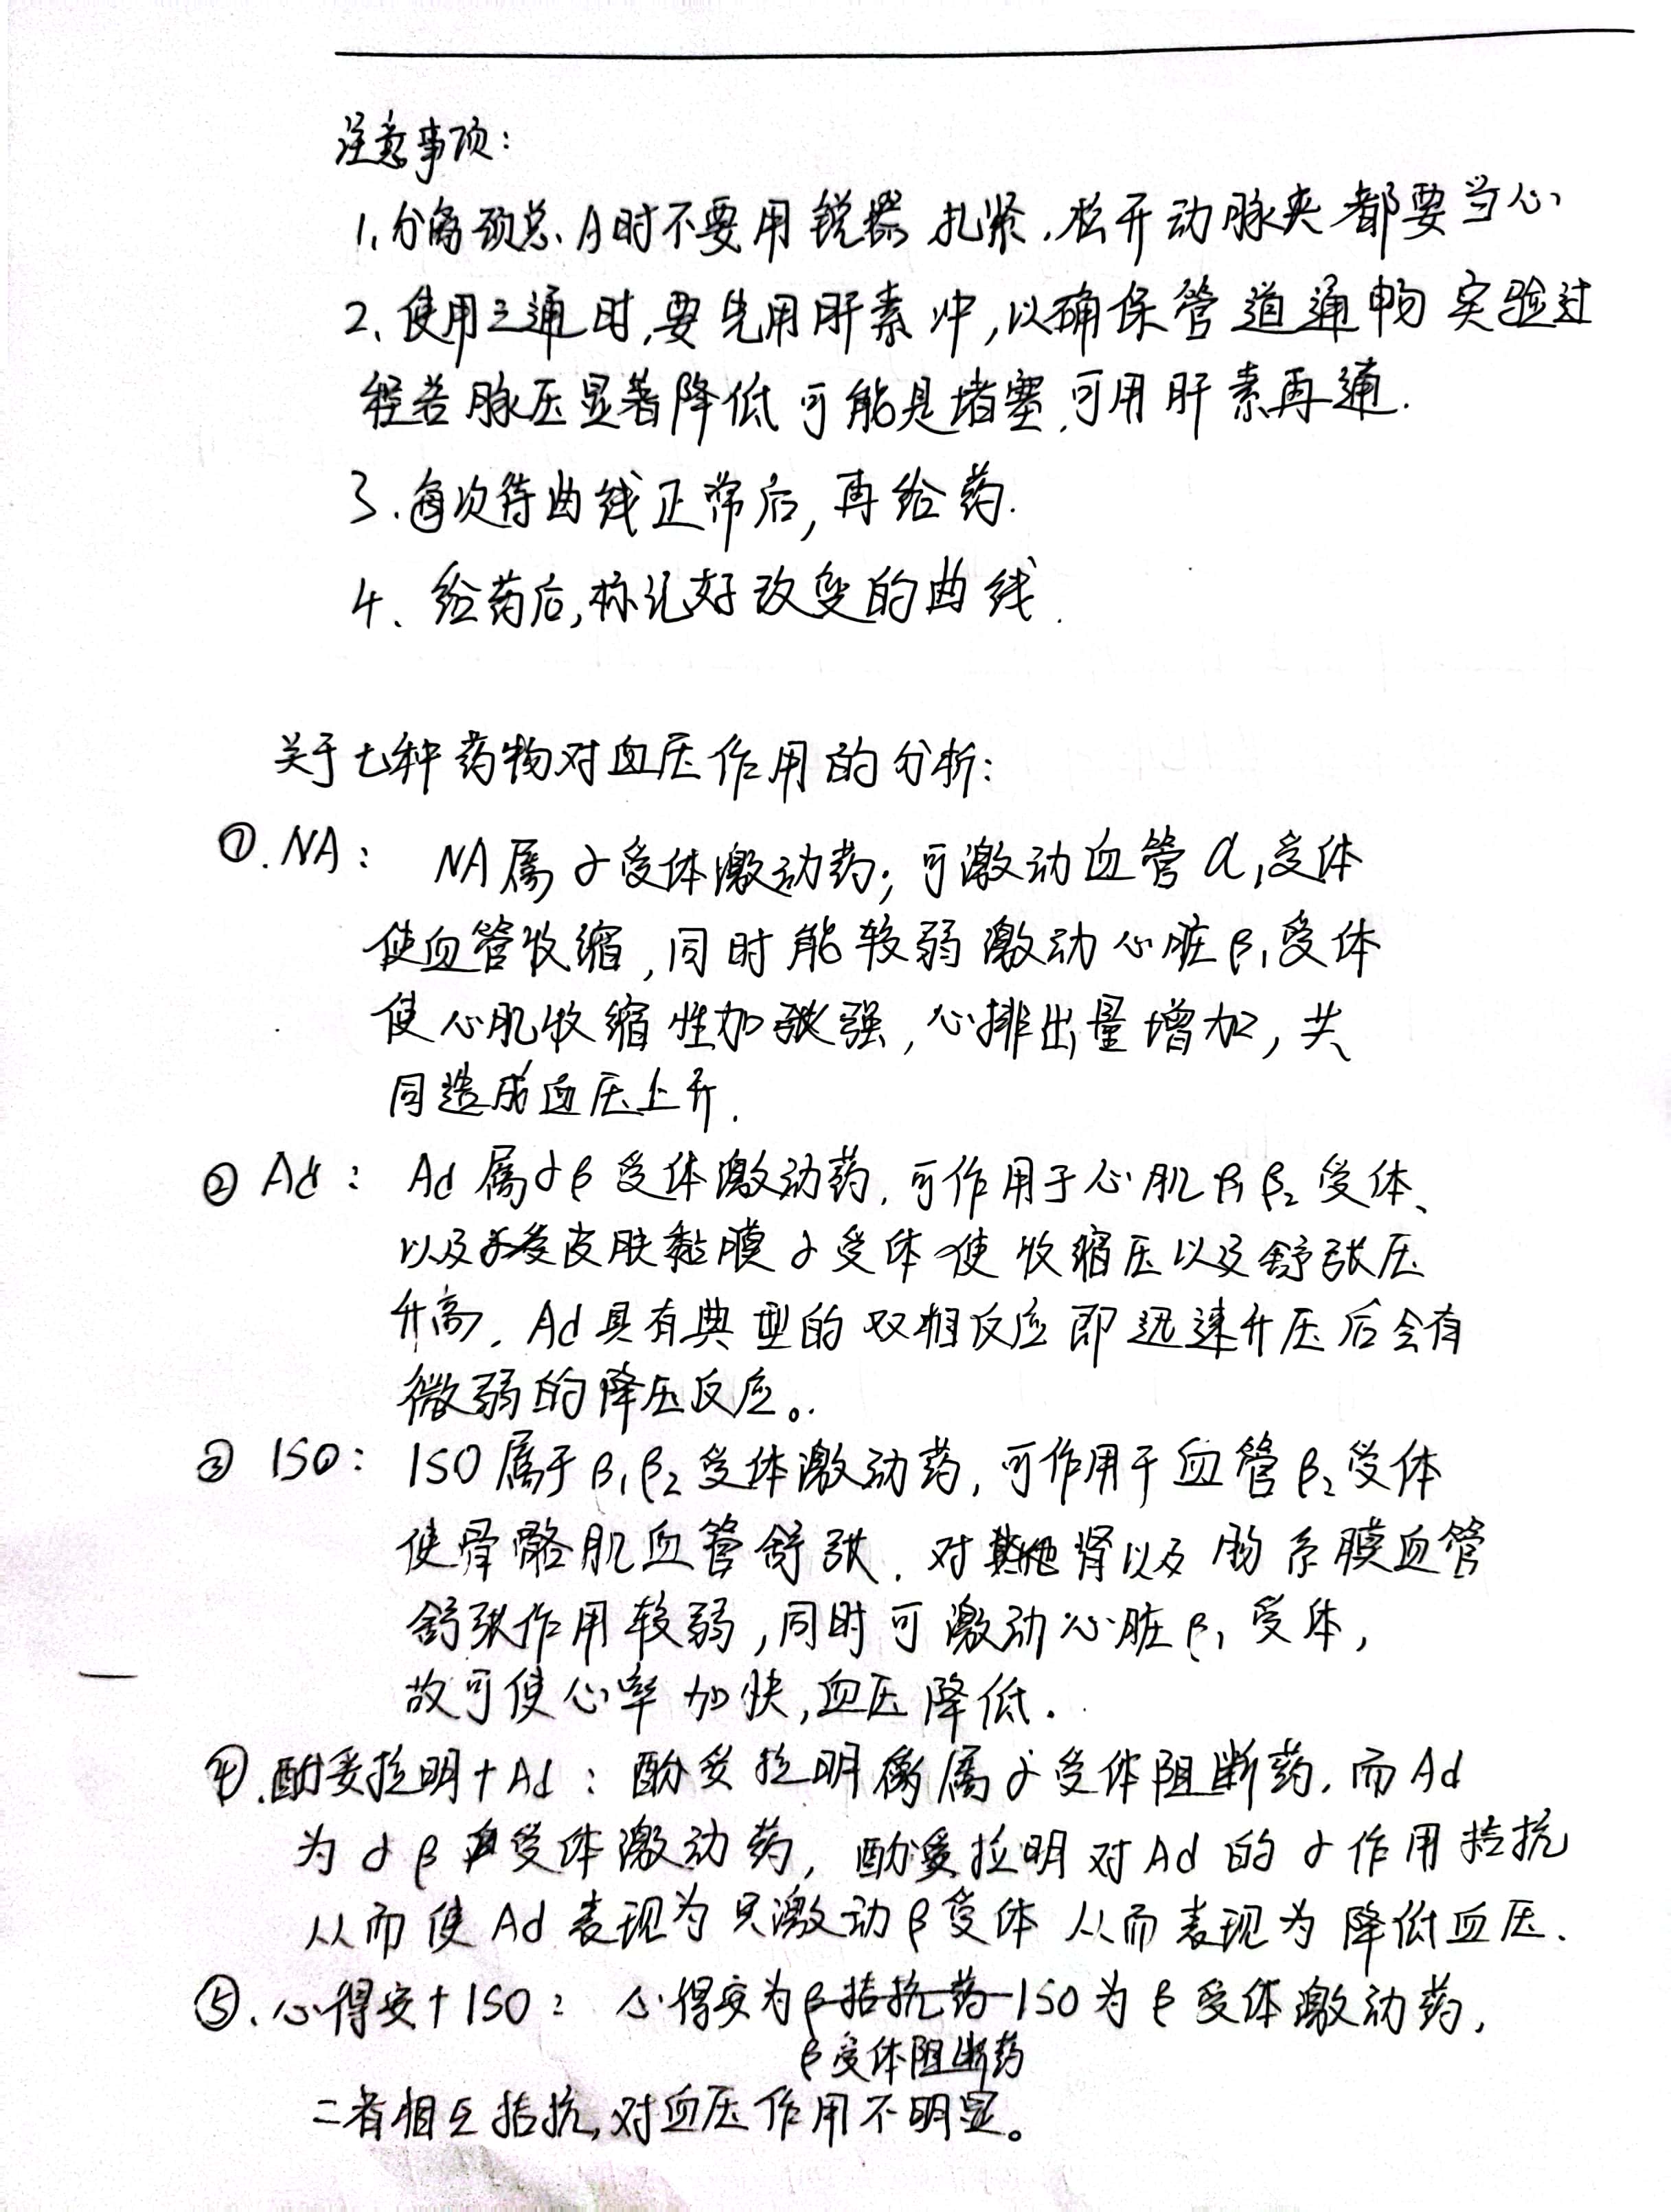 注意事项:
1、分离颈总、A时不要用锐器 扎紧、松开动脉夹都要当心
2、使用三通时,要先用肝素冲,以确保管道通畅 实验过
程若脉压显著降低可能是堵塞,可用肝素再通.
3、每次待曲线正常后,再给药.
4、给药后,标记好改变的曲线.
关于七种药物对血压作用的分析:
①.NA: NA属α受体激动药;可激动血管α₁受体
使血管收缩,同时能较弱激动心脏β₁受体
使心肌收缩性加强,心排出量增加,共
同造成血压上升.
② Ad: Ad属αβ受体激动药,可作用于心肌β₁β₂受体、
以及皮肤黏膜α受体使收缩压以及舒张压
升高. Ad具有典型的双相反应即迅速升压后会有
微弱的降压反应。
③ ISO: ISO属于β₁β₂受体激动药,可作用于血管β₂受体
使骨骼肌血管舒张.对肾以及肠系膜血管
舒张作用较弱,同时可激动心脏β₁受体,
故可使心率加快,血压降低.
④.酚妥拉明+Ad: 酚妥拉明属α受体阻断药,而Ad
为αβ受体激动药,酚妥拉明对Ad的α作用拮抗
从而使Ad表现为只激动β受体 从而表现为降低血压.
⑤.心得安+ISO: 心得安为β拮抗药 ISO为β受体激动药,
β受体阻断药
二者相互拮抗,对血压作用不明显。